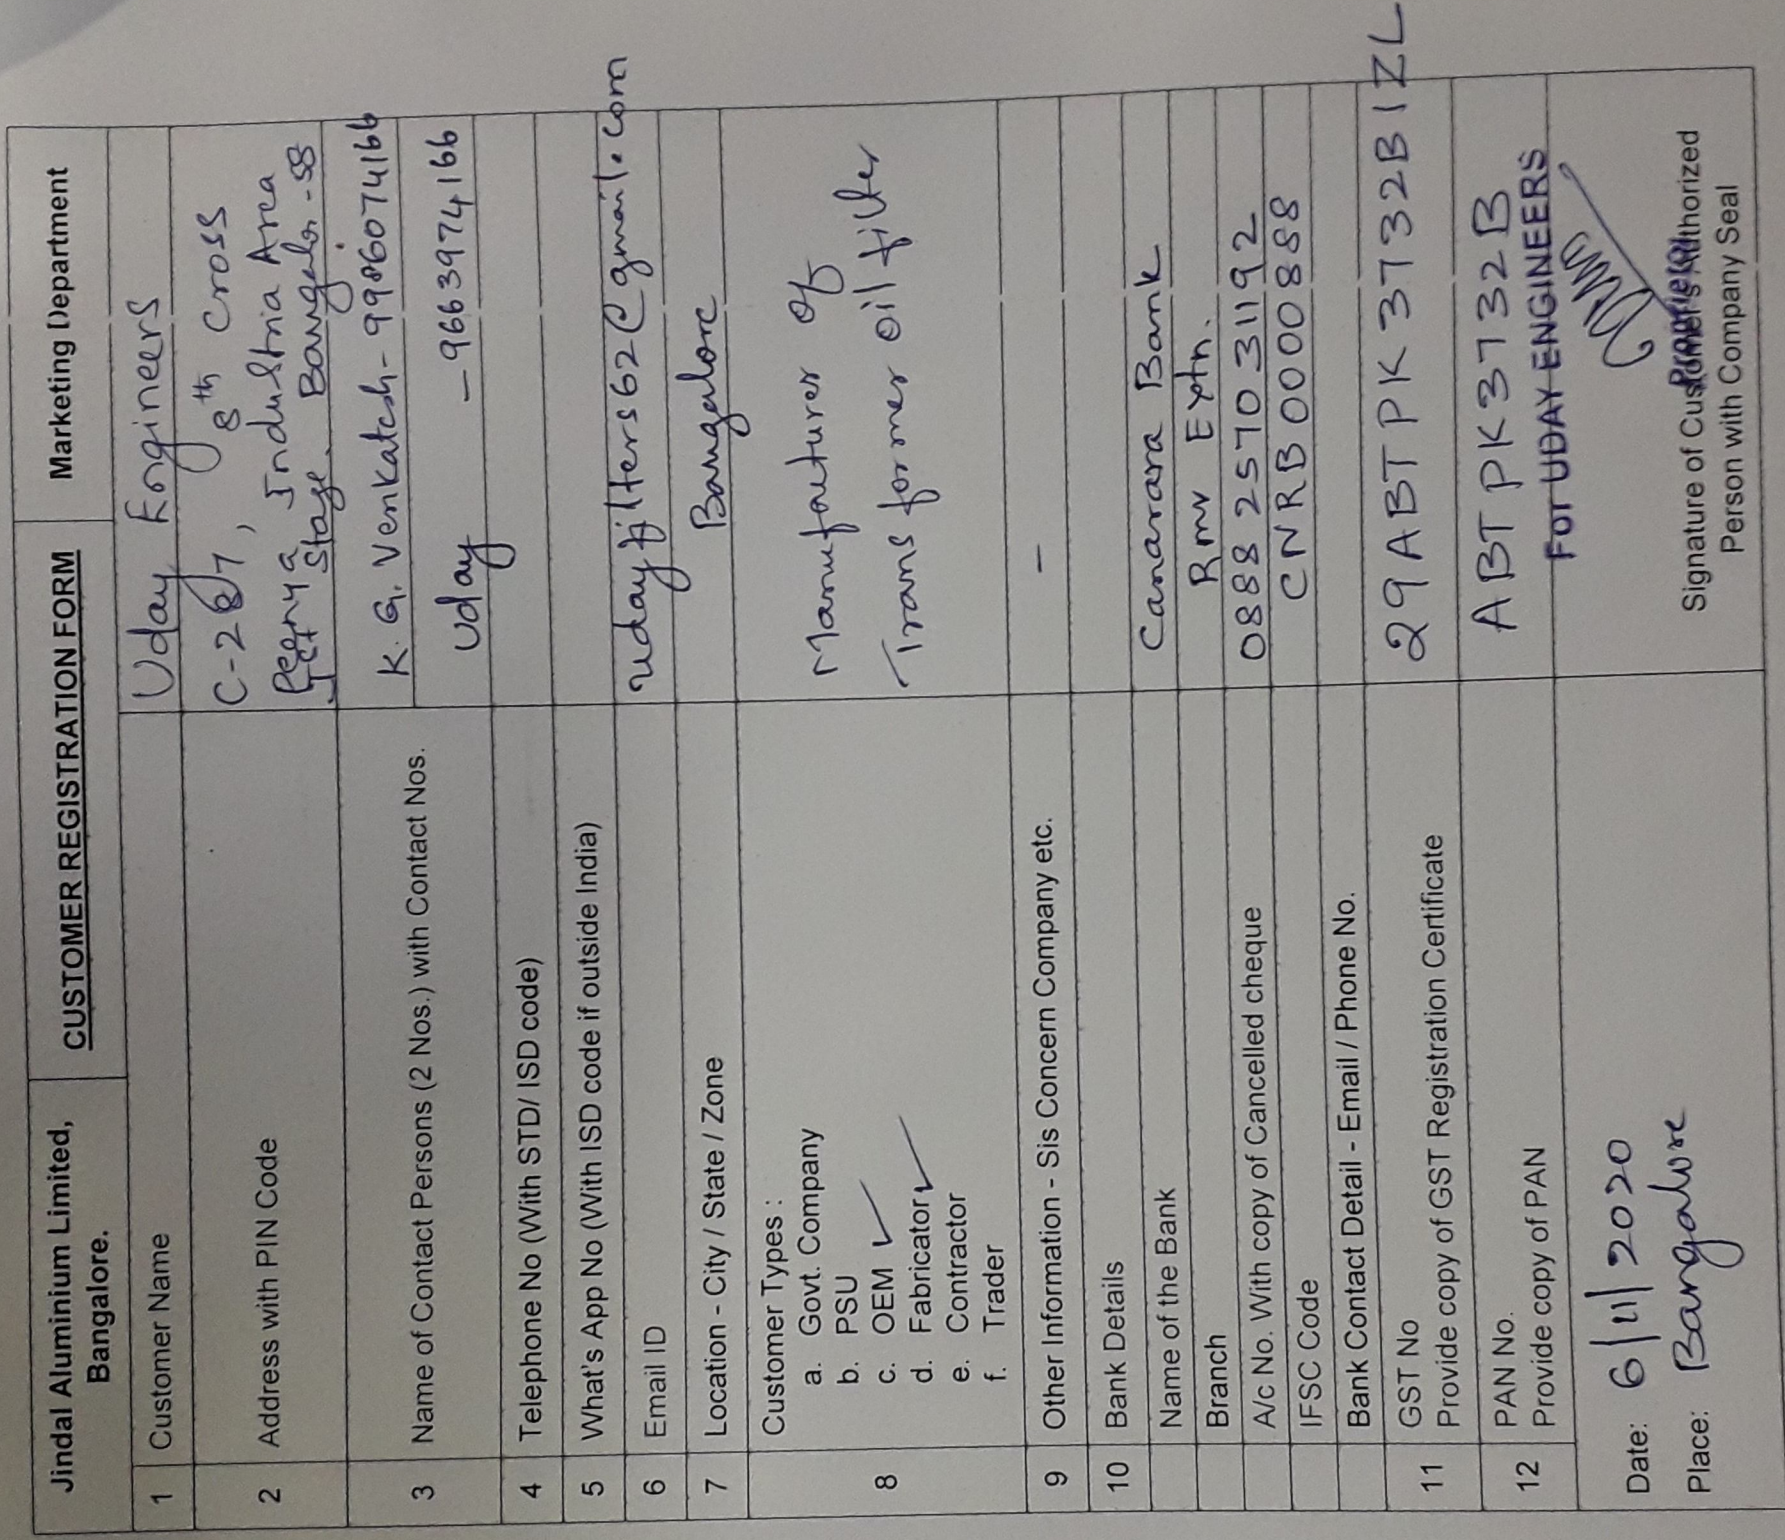 Jindal Aluminium Limited, Bangalore.
CUSTOMER REGISTRATION FORM
Marketing Department
1 Customer Name Uday Engineers
2 Address with PIN Code C-267, 8th Cross
Peenya Industria Area
Ist Stage. Bangalor-58
3 Name of Contact Persons (2 Nos.) with Contact Nos. K. G. Venkatesh- 9986074166
Uday - 9663974166
4 Telephone No (With STD/ ISD code)
5 What's App No (With ISD code if outside India)
6 Email ID udayfilters62@gmail.com
7 Location - City / State / Zone Bangalore
8 Customer Types :
a. Govt. Company
b. PSU
c. OEM ✓
d. Fabricator ✓
e. Contractor
f. Trader
Manufacturer of
Transformer oil filter
9 Other Information - Sis Concern Company etc. -
10 Bank Details
Name of the Bank Canarara Bank
Branch Rmv Extn.
A/c No. With copy of Cancelled cheque 0888257031192
IFSC Code CNRB0000888
Bank Contact Detail - Email / Phone No.
11 GST No 29ABTPK3732B1ZL
Provide copy of GST Registration Certificate
12 PAN No. ABTPK3732B
Provide copy of PAN
For UDAY ENGINEERS
Date: 6/11/2020
Place: Bangalore
Proprietor
Signature of Customer's Authorized
Person with Company Seal